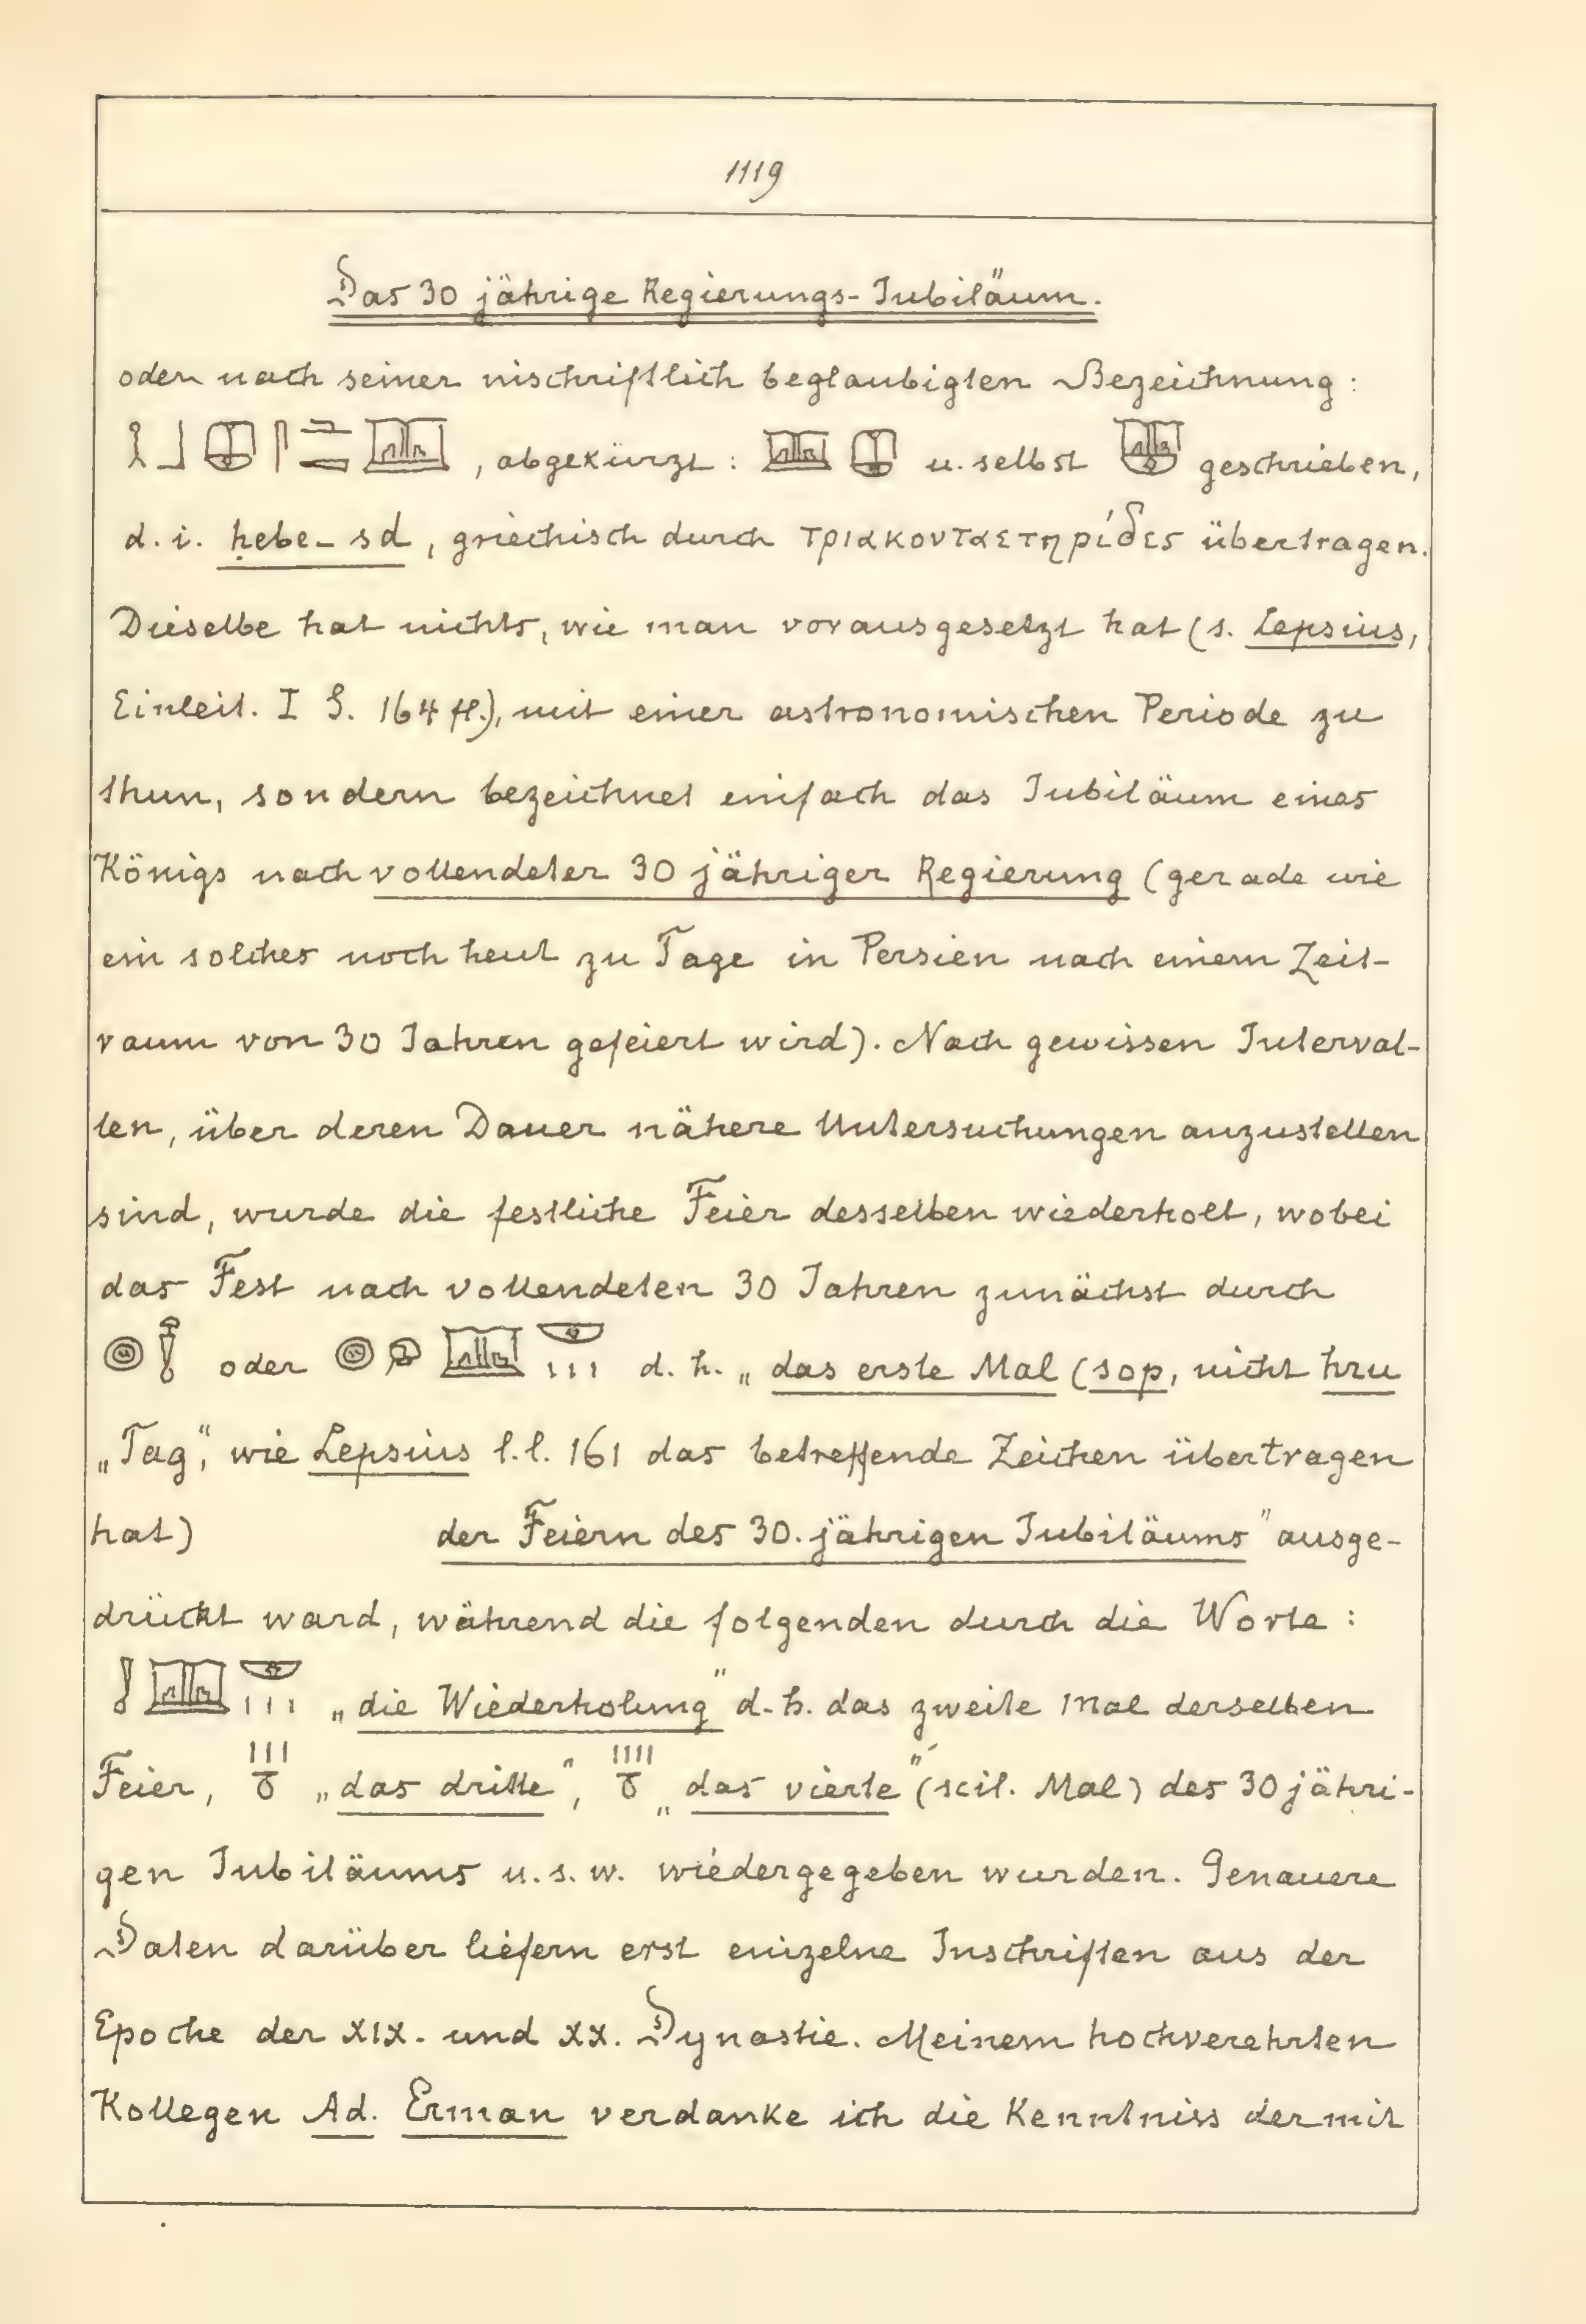 1119
Das 30 jährige Regierungs-Jubiläum.
oder nach seiner inschriftlich beglaubigten Bezeichnung:
, abgekürzt: u. selbst geschrieben,
d. i. ḥebe-sd, griechisch durch τριακονταετηρίδες übertragen.
Dieselbe hat nichts, wie man vorausgesetzt hat (s. Lepsius,
Einleit. I S. 164 ff.), mit einer astronomischen Periode zu
thun, sondern bezeichnet einfach das Jubiläum eines
Königs nach vollendeter 30 jähriger Regierung (gerade wie
ein solches noch heut zu Tage in Persien nach einem Zeit-
raum von 30 Jahren gefeiert wird). Nach gewissen Interval-
len, über deren Dauer nähere Untersuchungen anzustellen
sind, wurde die festliche Feier desselben wiederholt, wobei
das Fest nach vollendeten 30 Jahren zunächst durch
oder d. h. „das erste Mal (sop, nicht hru
„Tag“, wie Lepsius l.l. 161 das betreffende Zeichen übertragen
hat) der Feiern des 30. jährigen Jubiläums“ ausge-
drückt ward, während die folgenden durch die Worte:
„die Wiederholung“ d. h. das zweite Mal derselben
Feier, „das dritte“, „das vierte“ (scil. Mal) des 30 jähri-
gen Jubiläums u. s. w. wiedergegeben wurden. Genauere
Daten darüber liefern erst einzelne Inschriften aus der
Epoche der XIX. und XX. Dynastie. Meinem hochverehrten
Kollegen Ad. Erman verdanke ich die Kenntniss der mit